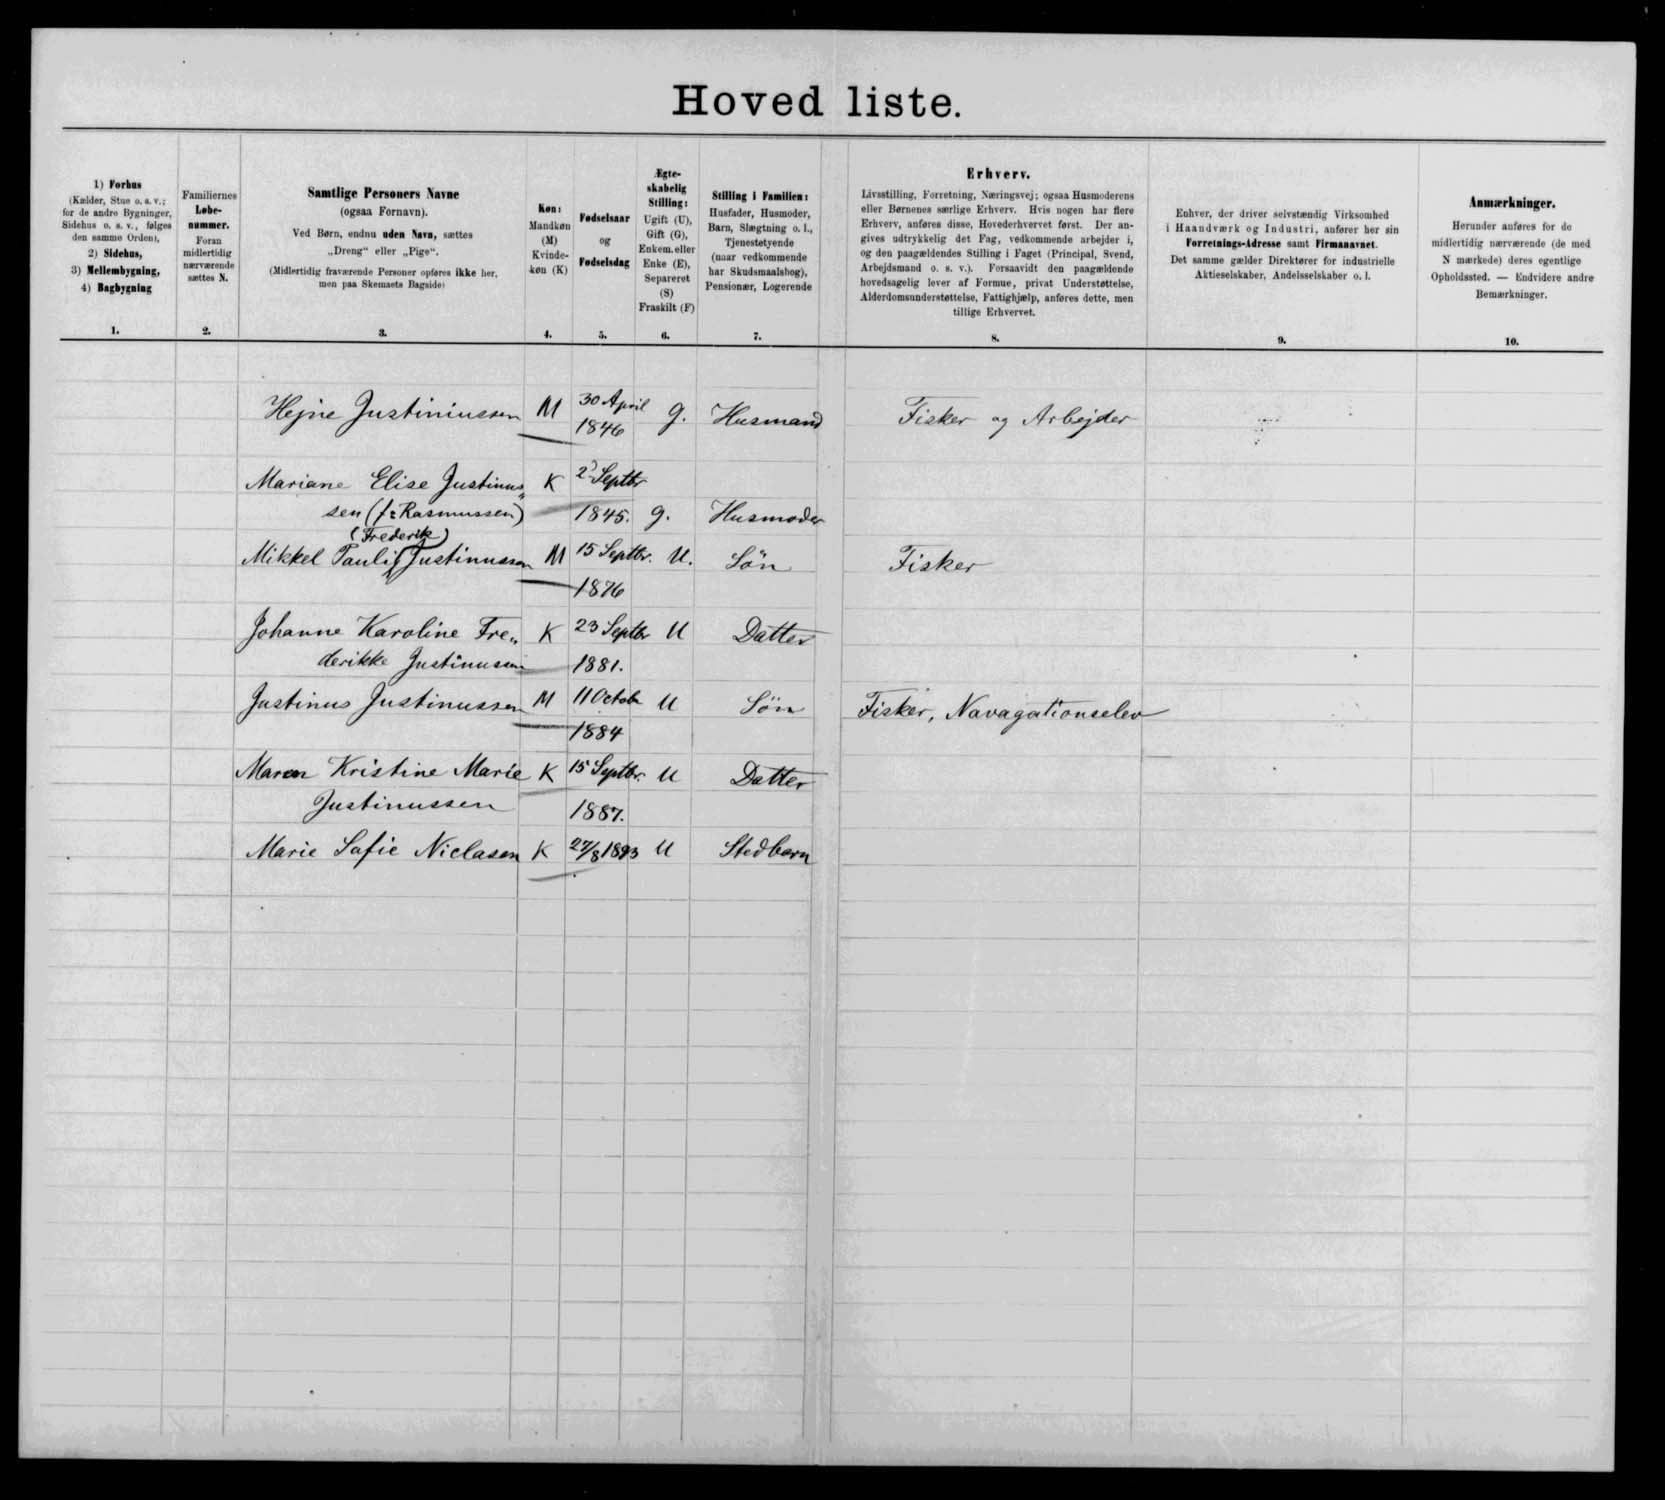 Hoved liste.
1) Forhus
(Kælder, Stue o. s. v.;
for de andre Bygninger,
Sidehus o. s. v., følges
den samme Orden),
2) Sidehus,
3) Mellembygning,
4) Bagbygning
1.
Familiernes
Løbe-
nummer.
Foran
midlertidig
nærværende
sættes N.
2.
Samtlige Personers Navne
(ogsaa Fornavn).
Ved Børn, endnu uden Navn, sættes
„Dreng“ eller „Pige“.
(Midlertidig fraværende Personer opføres ikke her,
men paa Skemaets Bagside)
3.
Køn:
Mandkøn
(M)
Kvinde-
køn (K)
4.
Fødselsaar
og
Fødselsdag
5.
Ægte-
skabelig
Stilling:
Ugift (U),
Gift (G),
Enkem. eller
Enke (E),
Separeret
(S)
Fraskilt (F)
6.
Stilling i Familien:
Husfader, Husmoder,
Barn, Slægtning o. l.,
Tjenestetyende
(naar vedkommende
har Skudsmaalsbog),
Pensionær, Logerende
7.
Erhverv.
Livsstilling, Forretning, Næringsvej; ogsaa Husmoderens
eller Børnenes særlige Erhverv. Hvis nogen har flere
Erhverv, anføres disse, Hovederhvervet først. Der an-
gives udtrykkelig det Fag, vedkommende arbejder i,
og den paagældendes Stilling i Faget (Principal, Svend,
Arbejdsmand o. s. v.). Forsaavidt den paagældende
hovedsagelig lever af Formue, privat Understøttelse,
Alderdomsunderstøttelse, Fattighjælp, anføres dette, men
tillige Erhvervet.
8.
Enhver, der driver selvstændig Virksomhed
i Haandværk og Industri, anfører her sin
Forretnings-Adresse samt Firmanavnet.
Det samme gælder Direktører for industrielle
Aktieselskaber, Andelsselskaber o. l.
9.
Anmærkninger.
Herunder anføres for de
midlertidig nærværende (de med
N mærkede) deres egentlige
Opholdssted. — Endvidere andre
Bemærkninger.
10.
Hejne Justiniussen M 30 April g. Husmand Fisker og Arbejder
1846
Mariane Elise Justinus„ K Septbr
sen (f: Rasmussen) 1845. g. Husmoder
(Frederik)
Mikkel Pauli Justinussen M 15 Septbr. U. Søn Fisker
1876
Johanne Karoline Fre„ K 23 Septbr U Datter
derikke Justinussen 1881.
Justinus Justinussen M 11 Octobr U Søn Fisker, Navagationselev
1884
Maren Kristine Marie K 15 Septbr. U Datter
Justinussen 1887.
Marie Sofie Niclasen K 27/8 1893 U Stedbarn